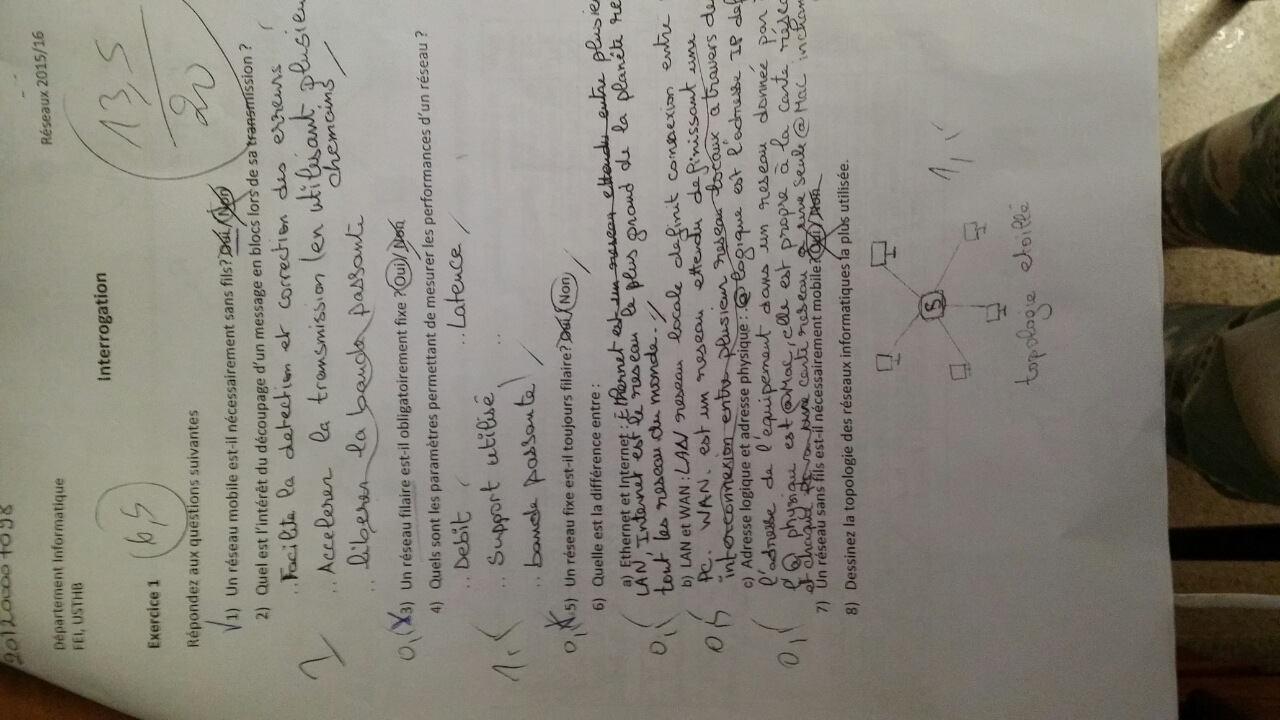 Département Informatique
Réseaux 2015/16
FEI, USTHB
Interrogation
13,5
20
Exercice 1
6,5
Répondez aux questions suivantes
1) Un réseau mobile est-il nécessairement sans fils? Oui / Non
2) Quel est l'intérêt du découpage d'un message en blocs lors de sa transmission ?
.. Facilite la detection et correction des erreurs
1 .. Accelerer la transmission (en utilisant plusieu
chemains
.. liberer la banda passante
3) Un réseau filaire est-il obligatoirement fixe ? Oui / Non
4) Quels sont les paramètres permettant de mesurer les performances d'un réseau ?
.. Debit .. Latence
.. Support utilisé ..
.. bande passante
5) Un réseau fixe est-il toujours filaire? Oui / Non
6) Quelle est la différence entre :
a) Ethernet et Internet : Ethernet est un reseau ettendu entre plusie
LAN, Internet est le reseau le plus grand de la planête re
tout les reseau du monde.
b) LAN et WAN : LAN reseau locale definit connexion entre
PC. WAN. est un reseau ettendu definissant une
interconnexion entre plusieur reseau locaux a travers de
c) Adresse logique et adresse physique : @ logique est l'adresse IP def
l'adresse de l'equipement dans un reseau donnée par
l'@ physique est @Mac, elle est propre à la carte résea
et chaque carte reseau a une seule @Mac inchan
7) Un réseau sans fils est-il nécessairement mobile? Oui / Non
8) Dessinez la topologie des réseaux informatiques la plus utilisée.
S
topologie etoillé